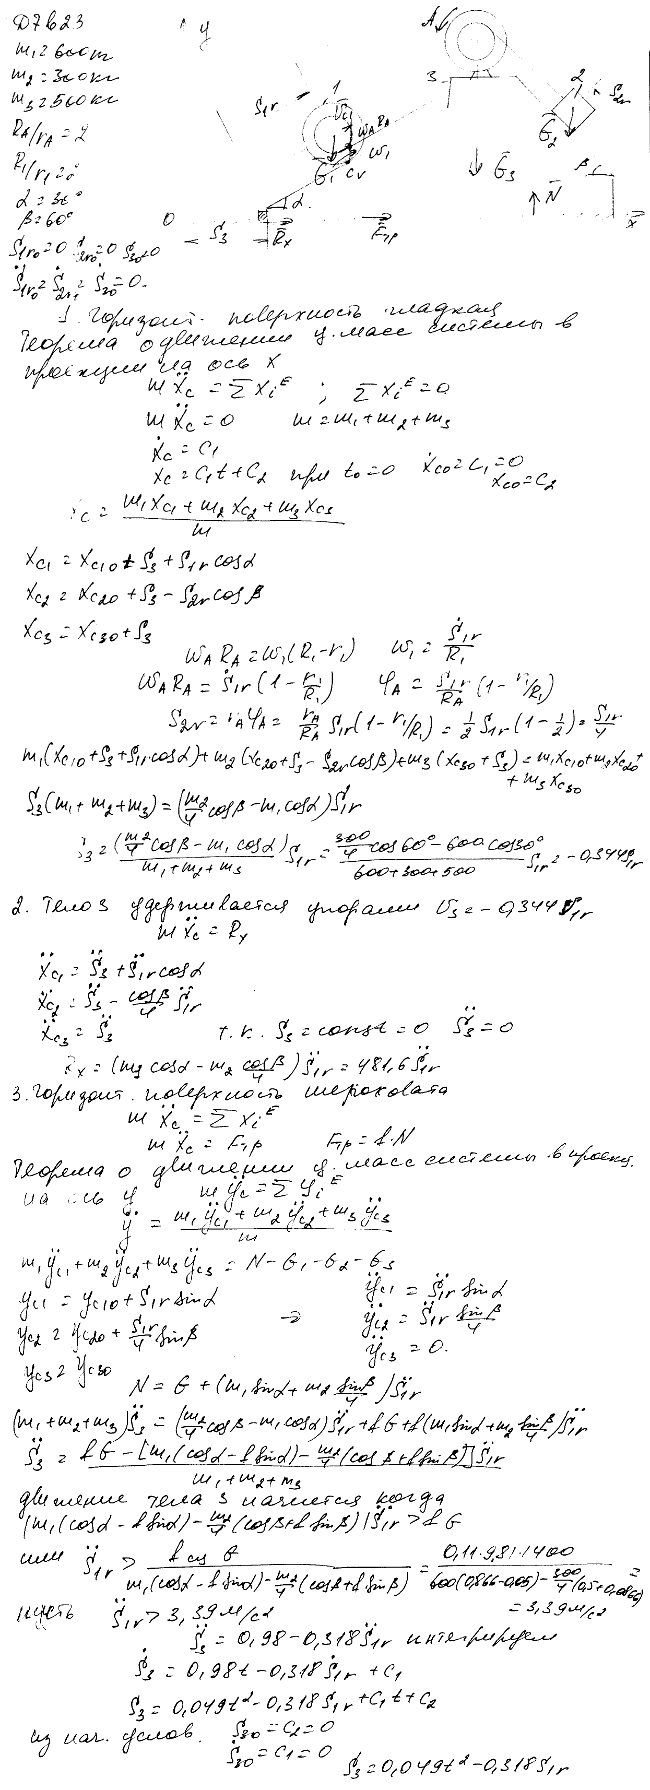 Д7 В23
m₁ = 600 кг
m₂ = 300 кг
m₃ = 500 кг
R_A/r_A = 2
R₁/r₁ = 2
α = 30°
β = 60°
Ṡ₁r₀ = 0 Ṡ₂r₀ = 0 Ṡ₃₀ = 0
y
A
1
2
3
S₁r
S₂r
ω_A R_A
ω₁
G₁
Cv
G₂
G₃
N
α
β
0
S₃
Rx
Fтр
x
1. Горизонт. поверхность гладкая
Теорема о движении ц. масс системы в
проекции на ось X
mẍc = ΣXiᴱ ; ΣXiᴱ = 0
mẍc = 0 m = m₁ + m₂ + m₃
ẋc = C₁
xc = C₁t + C₂ при t₀ = 0 ẋc₀ = C₁ = 0
xc₀ = C₂
xc = (m₁xc₁ + m₂xc₂ + m₃xc₃)/m
xc₁ = xc₁₀ + S₃ + S₁r cosα
xc₂ = xc₂₀ + S₃ - S₂r cosβ
xc₃ = xc₃₀ + S₃
ω_A R_A = ω₁(R₁ - r₁) ω₁ = Ṡ₁r/R₁
ω_A R_A = Ṡ₁r(1 - r₁/R₁) φ_A = S₁r/R_A (1 - r₁/R₁)
S₂r = r_A φ_A = r_A/R_A S₁r(1 - r₁/R₁) = 1/2 S₁r(1 - 1/2) = S₁r/4
m₁(xc₁₀ + S₃ + S₁r cosα) + m₂(xc₂₀ + S₃ - S₂r cosβ) + m₃(xc₃₀ + S₃) = m₁xc₁₀ + m₂xc₂₀ +
+ m₃xc₃₀
S₃(m₁ + m₂ + m₃) = (m₂/4 cosβ - m₁cosα)S₁r
S₃ = (m₂/4 cosβ - m₁cosα)/(m₁ + m₂ + m₃) S₁r = (300/4 cos60° - 600cos30°)/(600 + 300 + 500) S₁r = -0,344S₁r
2. Тело 3 удерживается упорами v₃ = -0,344v₁r
mẍc = Rx
ẍc₁ = S̈₃ + S̈₁r cosα
ẍc₂ = S̈₃ - cosβ/4 S̈₁r
ẍc₃ = S̈₃ т.к. S₃ = const = 0 S̈₃ = 0
Rx = (m₃cosα - m₂ cosβ/4)S̈₁r = 481,6S̈₁r
3. Горизонт. поверхность шероховата
mẍc = ΣXiᴱ
mẍc = Fтр Fтр = f·N
Теорема о движении ц. масс системы в проекц.
на ось y mÿc = ΣYiᴱ
ÿ = (m₁ÿc₁ + m₂ÿc₂ + m₃ÿc₃)/m
m₁ÿc₁ + m₂ÿc₂ + m₃ÿc₃ = N - G₁ - G₂ - G₃
yc₁ = yc₁₀ + S₁r sinα ÿc₁ = S̈₁r sinα
yc₂ = yc₂₀ + S₁r/4 sinβ => ÿc₂ = S̈₁r sinβ/4
yc₃ = yc₃₀ ÿc₃ = 0.
N = G + (m₁sinα + m₂ sinβ/4)S̈₁r
(m₁ + m₂ + m₃)S̈₃ = (m₂/4 cosβ - m₁cosα)S̈₁r + fG + f(m₁sinα + m₂ sinβ/4)S̈₁r
S̈₃ = (fG - [m₁(cosα - f sinα) - m₂/4 (cosβ + f sinβ)]S̈₁r)/(m₁ + m₂ + m₃)
движение тела 3 начнется когда
[m₁(cosα - f sinα) - m₂/4 (cosβ + f sinβ)]S̈₁r > fG
или S̈₁r > f G/(m₁(cosα - f sinα) - m₂/4 (cosβ + f sinβ)) = 0,1·9,81·1400/(600(0,866 - 0,05) - 300/4 (0,5 + 0,0866)) =
= 3,39 м/с²
пусть S̈₁r > 3,39 м/с²
S̈₃ = 0,98 - 0,318S̈₁r интегрируем
Ṡ₃ = 0,98t - 0,318Ṡ₁r + C₁
S₃ = 0,049t² - 0,318S₁r + C₁t + C₂
из нач. услов. S₃₀ = C₂ = 0
Ṡ₃₀ = C₁ = 0
S₃ = 0,049t² - 0,318S₁r